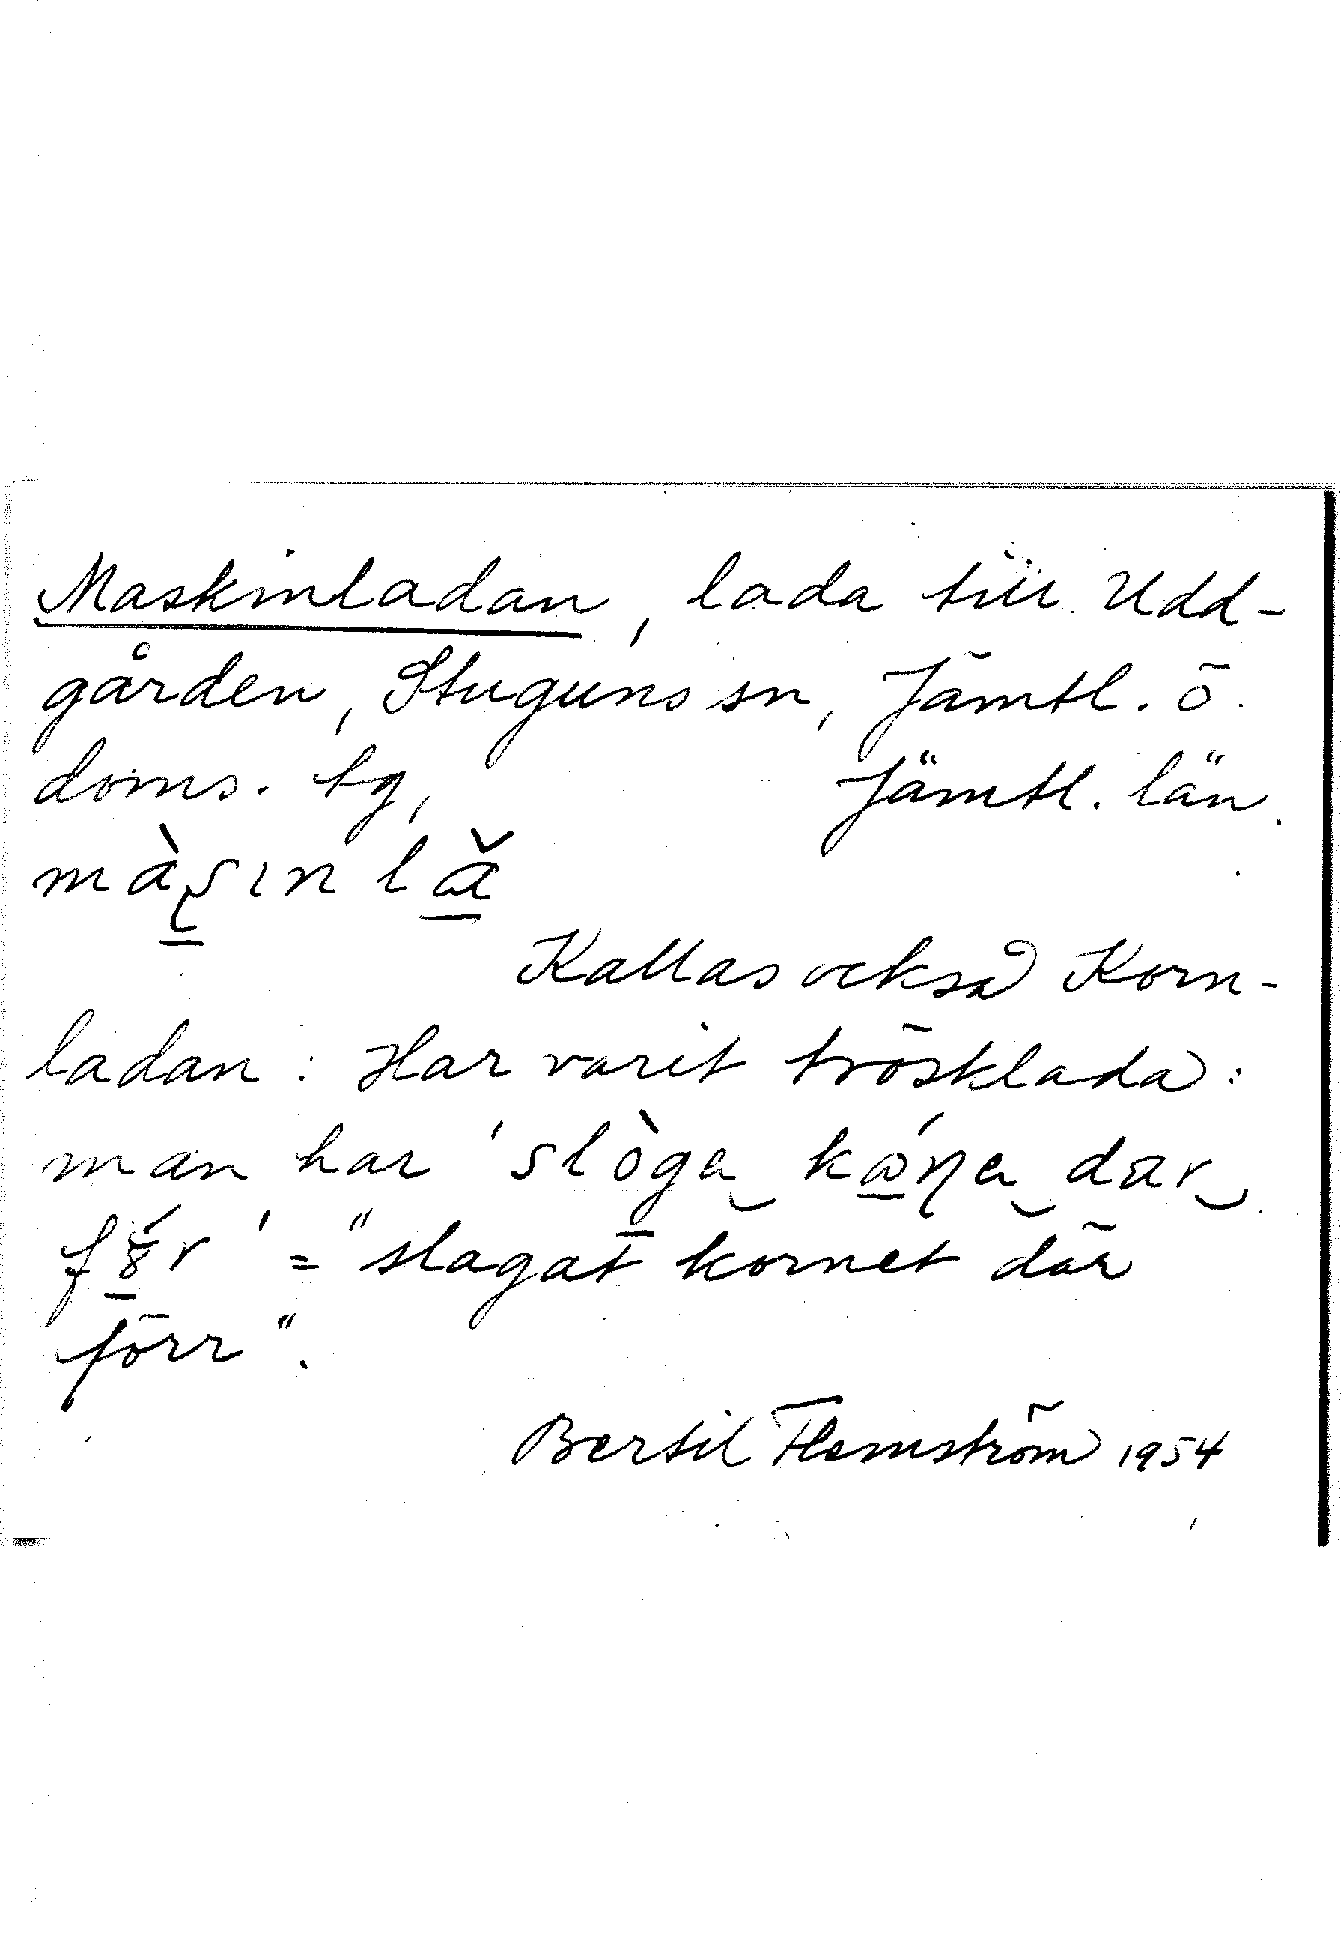 Maskinladan, lada till Udd-
gården, Stuguns sn, Jämtl. ö.
doms. tg, Jämtl. län.
Kallas också Korn-
ladan: Har varit trösklada:
man har
= "slagat kornet där
förr".
Bertil Flemström 1954